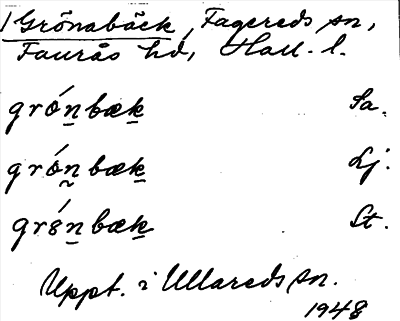 1 Grönabäck, Fagereds sn,
Faurås hd, Hall. l.
grónbæk Sa.
grónbæk Lj.
gr8́nbæk St.
Uppt. i Ullareds sn.
1948